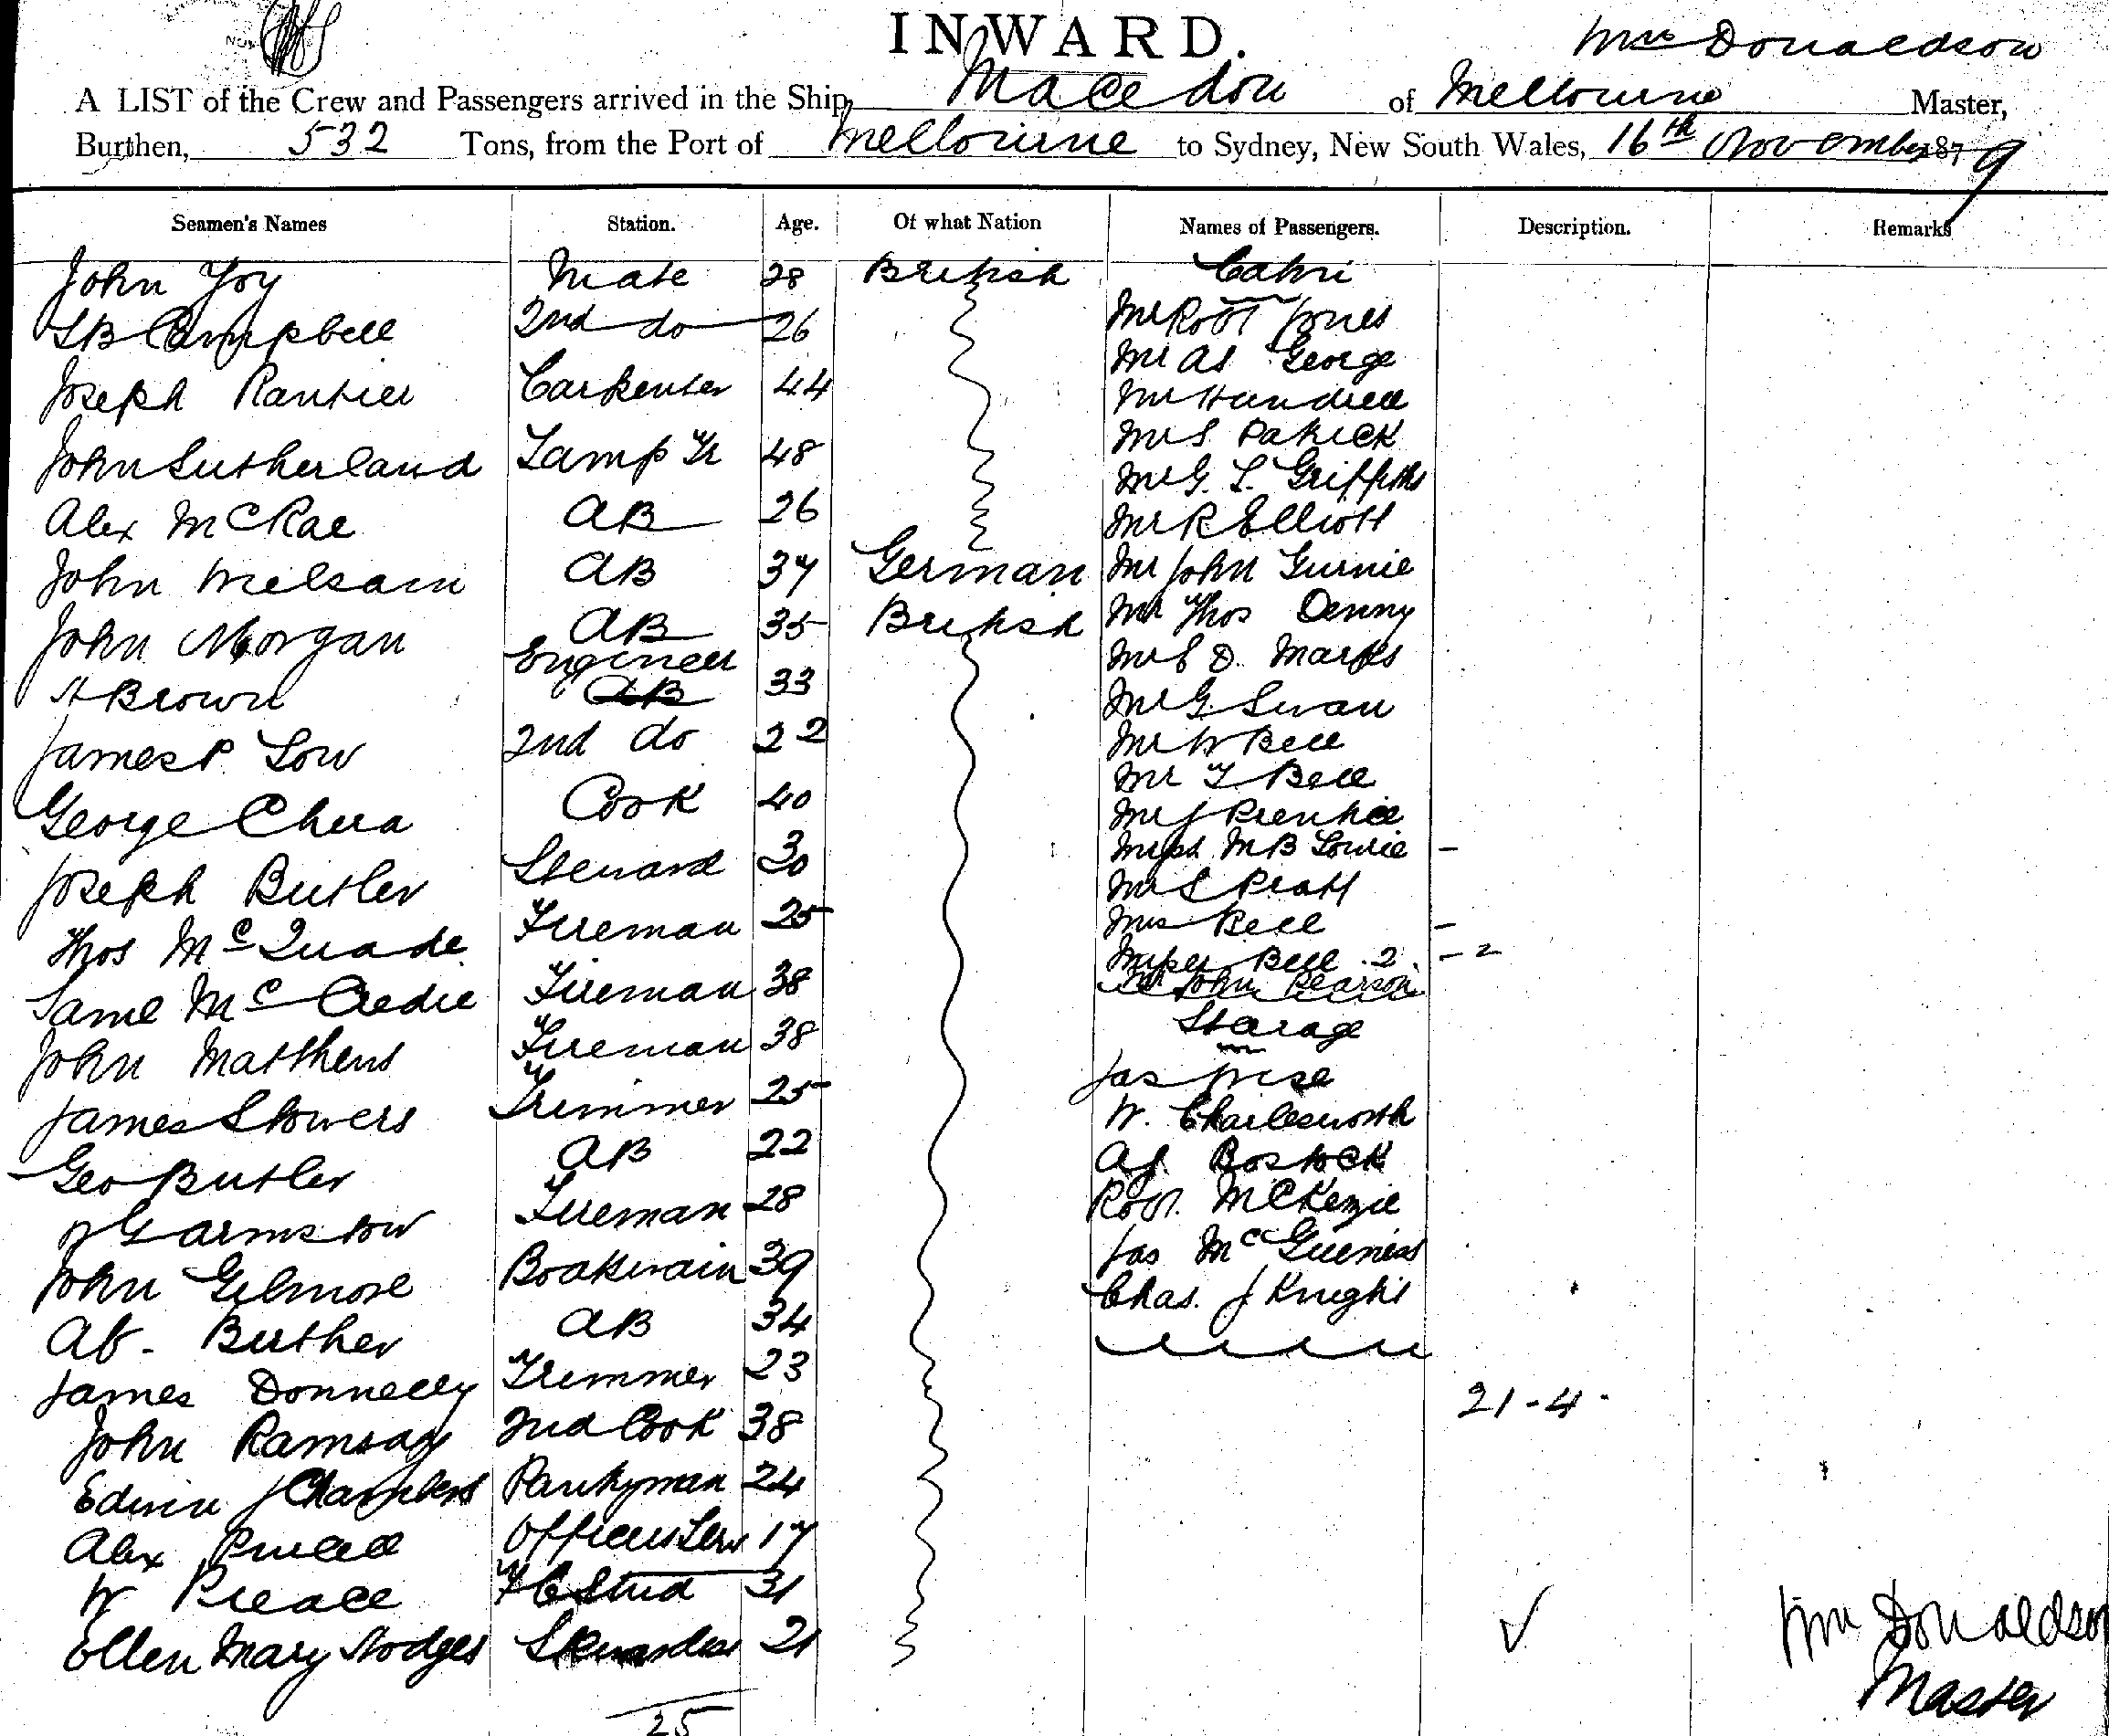 INWARD.
Wm Donaldson
A LIST of the Crew and Passengers arrived in the Ship Macedon of Melbourne Master,
Burthen, 532 Tons, from the Port of Melbourne to Sydney, New South Wales, 16th November 1879
Seamen's Names Station. Age. Of what Nation Names of Passengers. Description. Remarks
John Joy Mate 28 British Cabin
Mr Robt Jones
Campbell 2nd do 26
Mr As George
Joseph Carpenter 44
Mr Hundrell
Mr S Patrick
John Sutherland Lamp Tr 48
Mr G. L. Griffiths
Alex McRae AB 26 Mr R Elliott
John Melsain AB 37 German Mr John Gurnie
John Morgan AB 35 British Mr Thos Denny
Mr S D. Marks
H Brown Engineer AB 33
Mr G. Swan
James P. Low 2nd do 22 Mr W Bell
Mr T Bell
George Cook 40 Mr J Prentice
M B Lowrie -
Joseph Butler Steward 30 Mr S Pratt
Thos McQuade Fireman 25 Mrs Bell -
Misses Bell 2. - 2
Mr John Pearson
Saml McCredie Fireman 38
Starage
John Matthews Fireman 38
Jas Wise
James Stowers Trimmer 25 W. Charlesworth
Geo Butler AB 22 A J. Bostock
Armstow Fireman 28 Robt. McKenzie
John Gilmore Boatswain 39 Jas McGueness
Chas. J Knight
Ab. Buther AB 34
James Donnelly Trimmer 23
21 - 4 -
John Ramsay 2nd Cook 38
Edwin J Chambers Pantryman 24
Alex Officers Serv 17
W Preace F C Stwd 31
Ellen Mary Hodges Stewardess 21
Wm Donaldson
Master
25